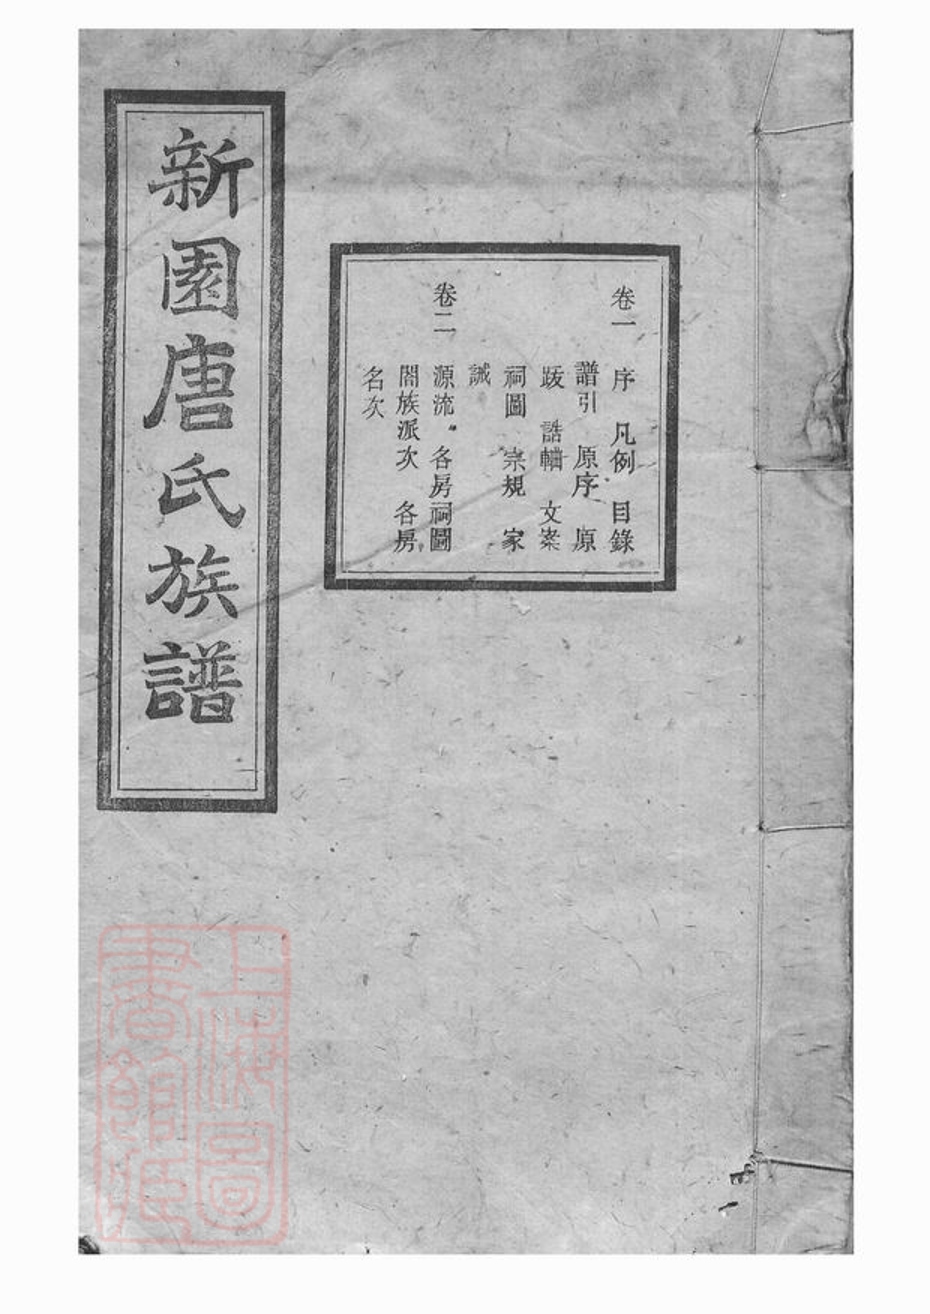 新園唐氏族譜
卷一 序 凡例 目錄
譜引 原序 原
跋 誥軸 文案
祠圖 宗規 家
誡
卷二 源流 各房祠圖
閤族派次 各房
名次
上海圖
書館藏